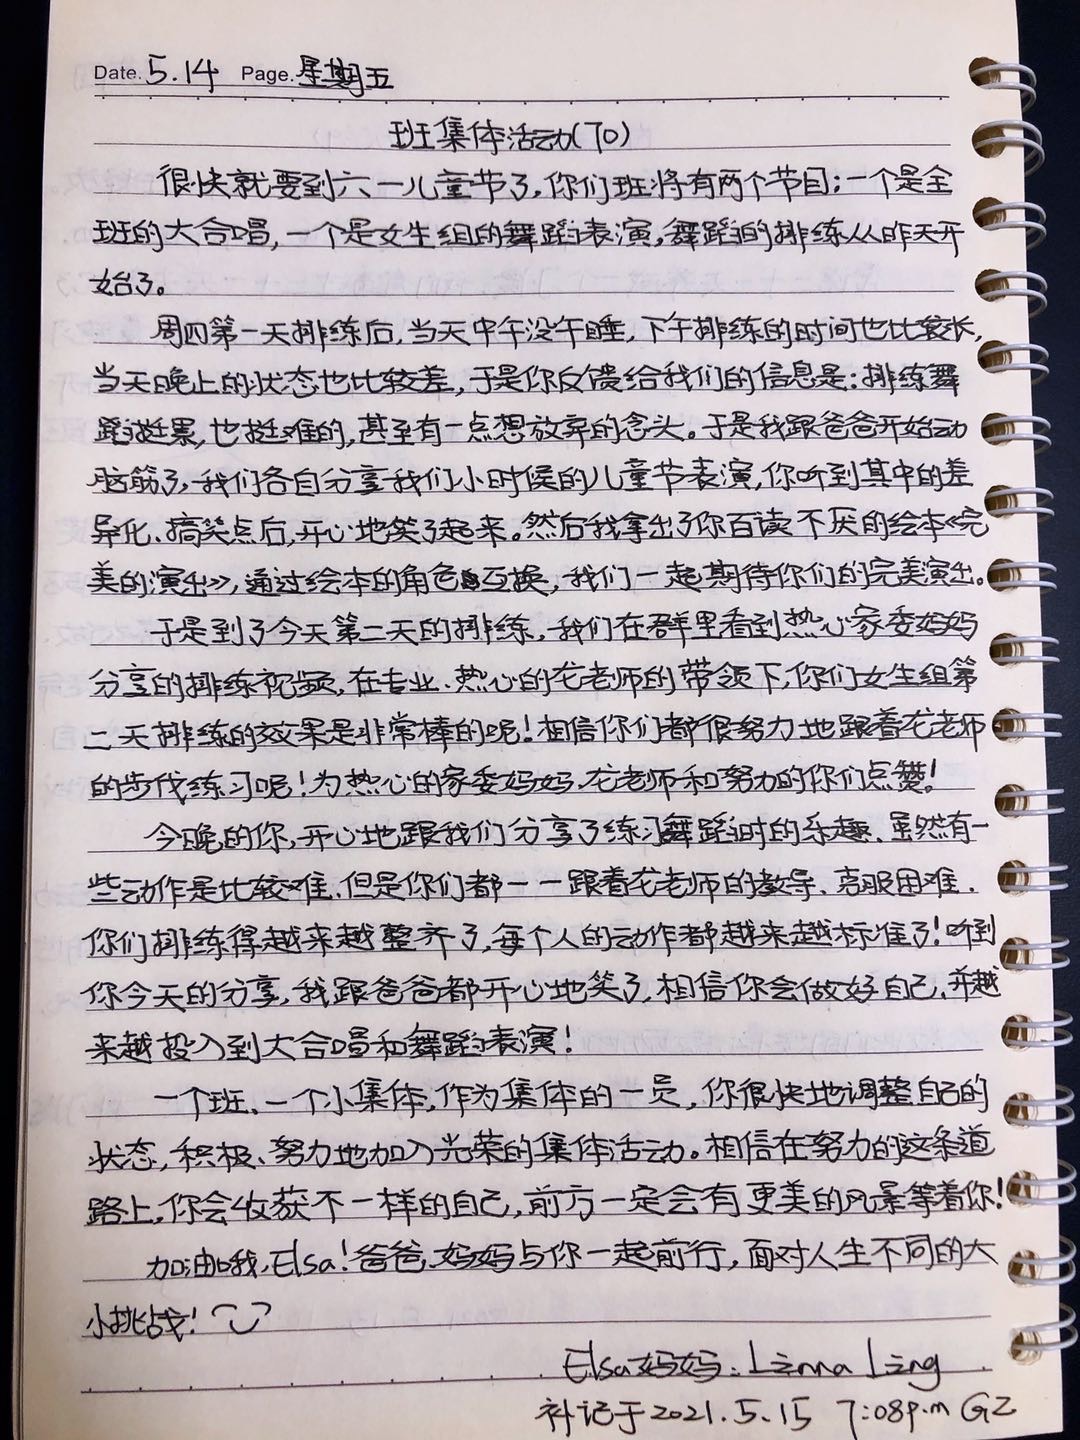 Date. 5.14 Page. 星期五
班集体活动(70)
很快就要到六一儿童节了,你们班将有两个节目;一个是全
班的大合唱,一个是女生组的舞蹈表演,舞蹈的排练从昨天开
始了。
周四第一天排练后,当天中午没午睡,下午排练的时间也比较长,
当天晚上的状态也比较差,于是你反馈给我们的信息是:排练舞
蹈挺累,也挺难的,甚至有一点想放弃的念头。于是我跟爸爸开始动
脑筋了,我们各自分享我们小时候的儿童节表演,你听到其中的差
异化、搞笑点后,开心地笑了起来。然后我拿出了你百读不厌的绘本《完
美的演出》,通过绘本的角色互换,我们一起期待你们的完美演出。
于是到了今天第二天的排练,我们在群里看到热心家委妈妈
分享的排练视频,在专业、热心的龙老师的带领下,你们女生组第
二天排练的效果是非常棒的呢!相信你们都很努力地跟着龙老师
的步伐练习呢!为热心的家委妈妈、龙老师和努力的你们点赞!
今晚的你,开心地跟我们分享了练习舞蹈时的乐趣、虽然有一
些动作是比较难,但是你们都一一跟着龙老师的教导、克服困难、
你们排练得越来越整齐了,每个人的动作都越来越标准了!听到
你今天的分享,我跟爸爸都开心地笑了,相信你会做好自己、并越
来越投入到大合唱和舞蹈表演!
一个班、一个小集体,作为集体的一员,你很快地调整自己的
状态,积极、努力地加入光荣的集体活动。相信在努力的这条道
路上,你会收获不一样的自己,前方一定会有更美的风景等着你!
加油哦,Elsa!爸爸、妈妈与你一起前行,面对人生不同的大
小挑战!
Elsa妈妈:Linna Ling
补记于2021.5.15 7:08p.m GZ